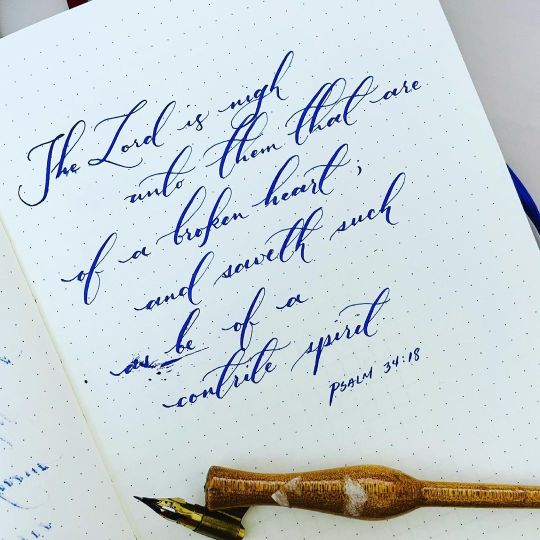 The Lord is nigh
unto them that are
of a broken heart;
and saveth such
as be of a
contrite spirit
PSALM 34:18